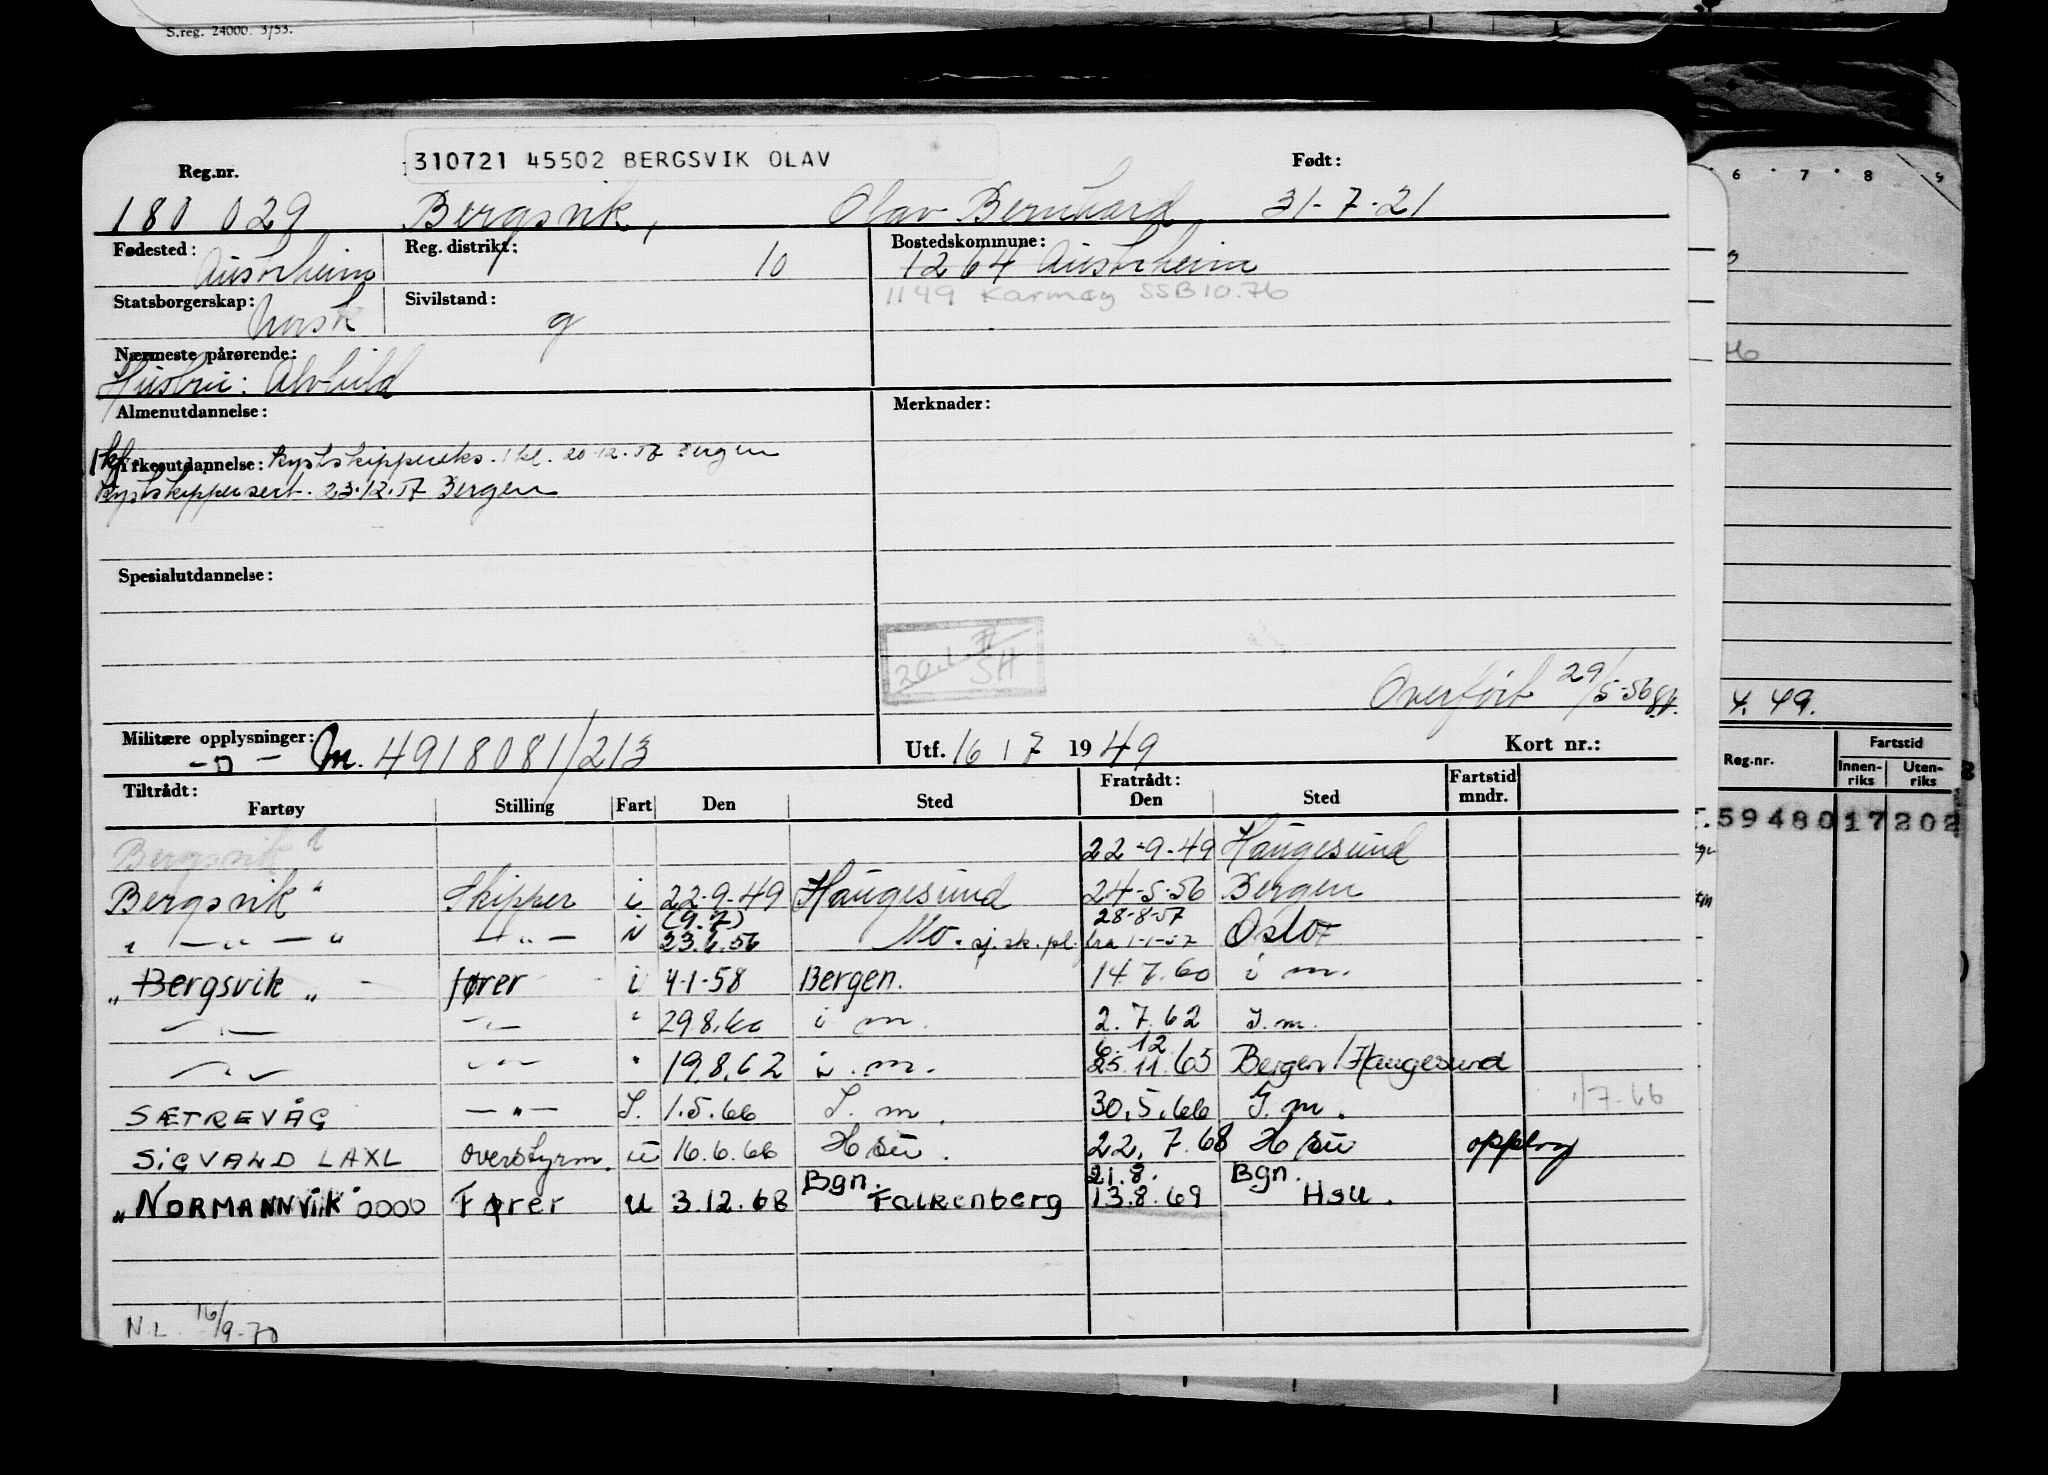 S.reg. 24000. 3/53.
310721 45502 BERGSVIK OLAV
Reg.nr. Født:
180 029 Bergsvik, Olav Bernhard 31-7-21
Fødested: Austrheim Reg. distrikt: 10 Bostedskommune: 1264 Austrheim
1149 Karmøy SSB 10.76
Statsborgerskap: norsk Sivilstand: g
Nærmeste pårørende:
Hustru: Alvhild
Almenutdannelse: Merknader:
Yrkesutdannelse: Kystskippereks. 1 kl. 20-12-57 Bergen
Kystskippersert. 23.12.57 Bergen
Spesialutdannelse:
SH
Overført 29/5-56
Militære opplysninger: M. 4918081/213 Utf. 16 / 7 1949 Kort nr.:
Tiltrådt: Fratrådt: Fartstid
Fartøy Stilling Fart Den Sted Den Sted mndr.
Bergsvik 22-9-49 Haugesund
Bergsvik" Skipper i 22-9-49 Haugesund 24-5-56 Bergen
(9.7) 28-8-57
" — " — " — " — 23.6.56 Mo. sj.sk.pl. fra 1-1-57 Oslo
"Bergsvik" fører i 4-1-58 Bergen. 14.7.60 i m.
— " — — " — " 29.8.60 i m. 2.7.62 I. m.
6. 12
— " — — " — " 19.8.62 i. m. 25.11.65 Bergen/Haugesund
SÆTREVÅG — " — I. 1.5.66 I. m. 30.5.66 I. m. 1/7-66
SIGVALD LAXL overstyrm. u 16.6.66 Hsu. 22.7.68 Hsu
Bgn. 21.8. Bgn.
"NORMANNVIK" OOOO Fører u 3.12.68 Falkenberg 13.8.69 Hsu.
N.L. 16/9-70
6 7 8 9
4.49.
Reg.nr. Fartstid
Innenriks Utenriks
5948017202